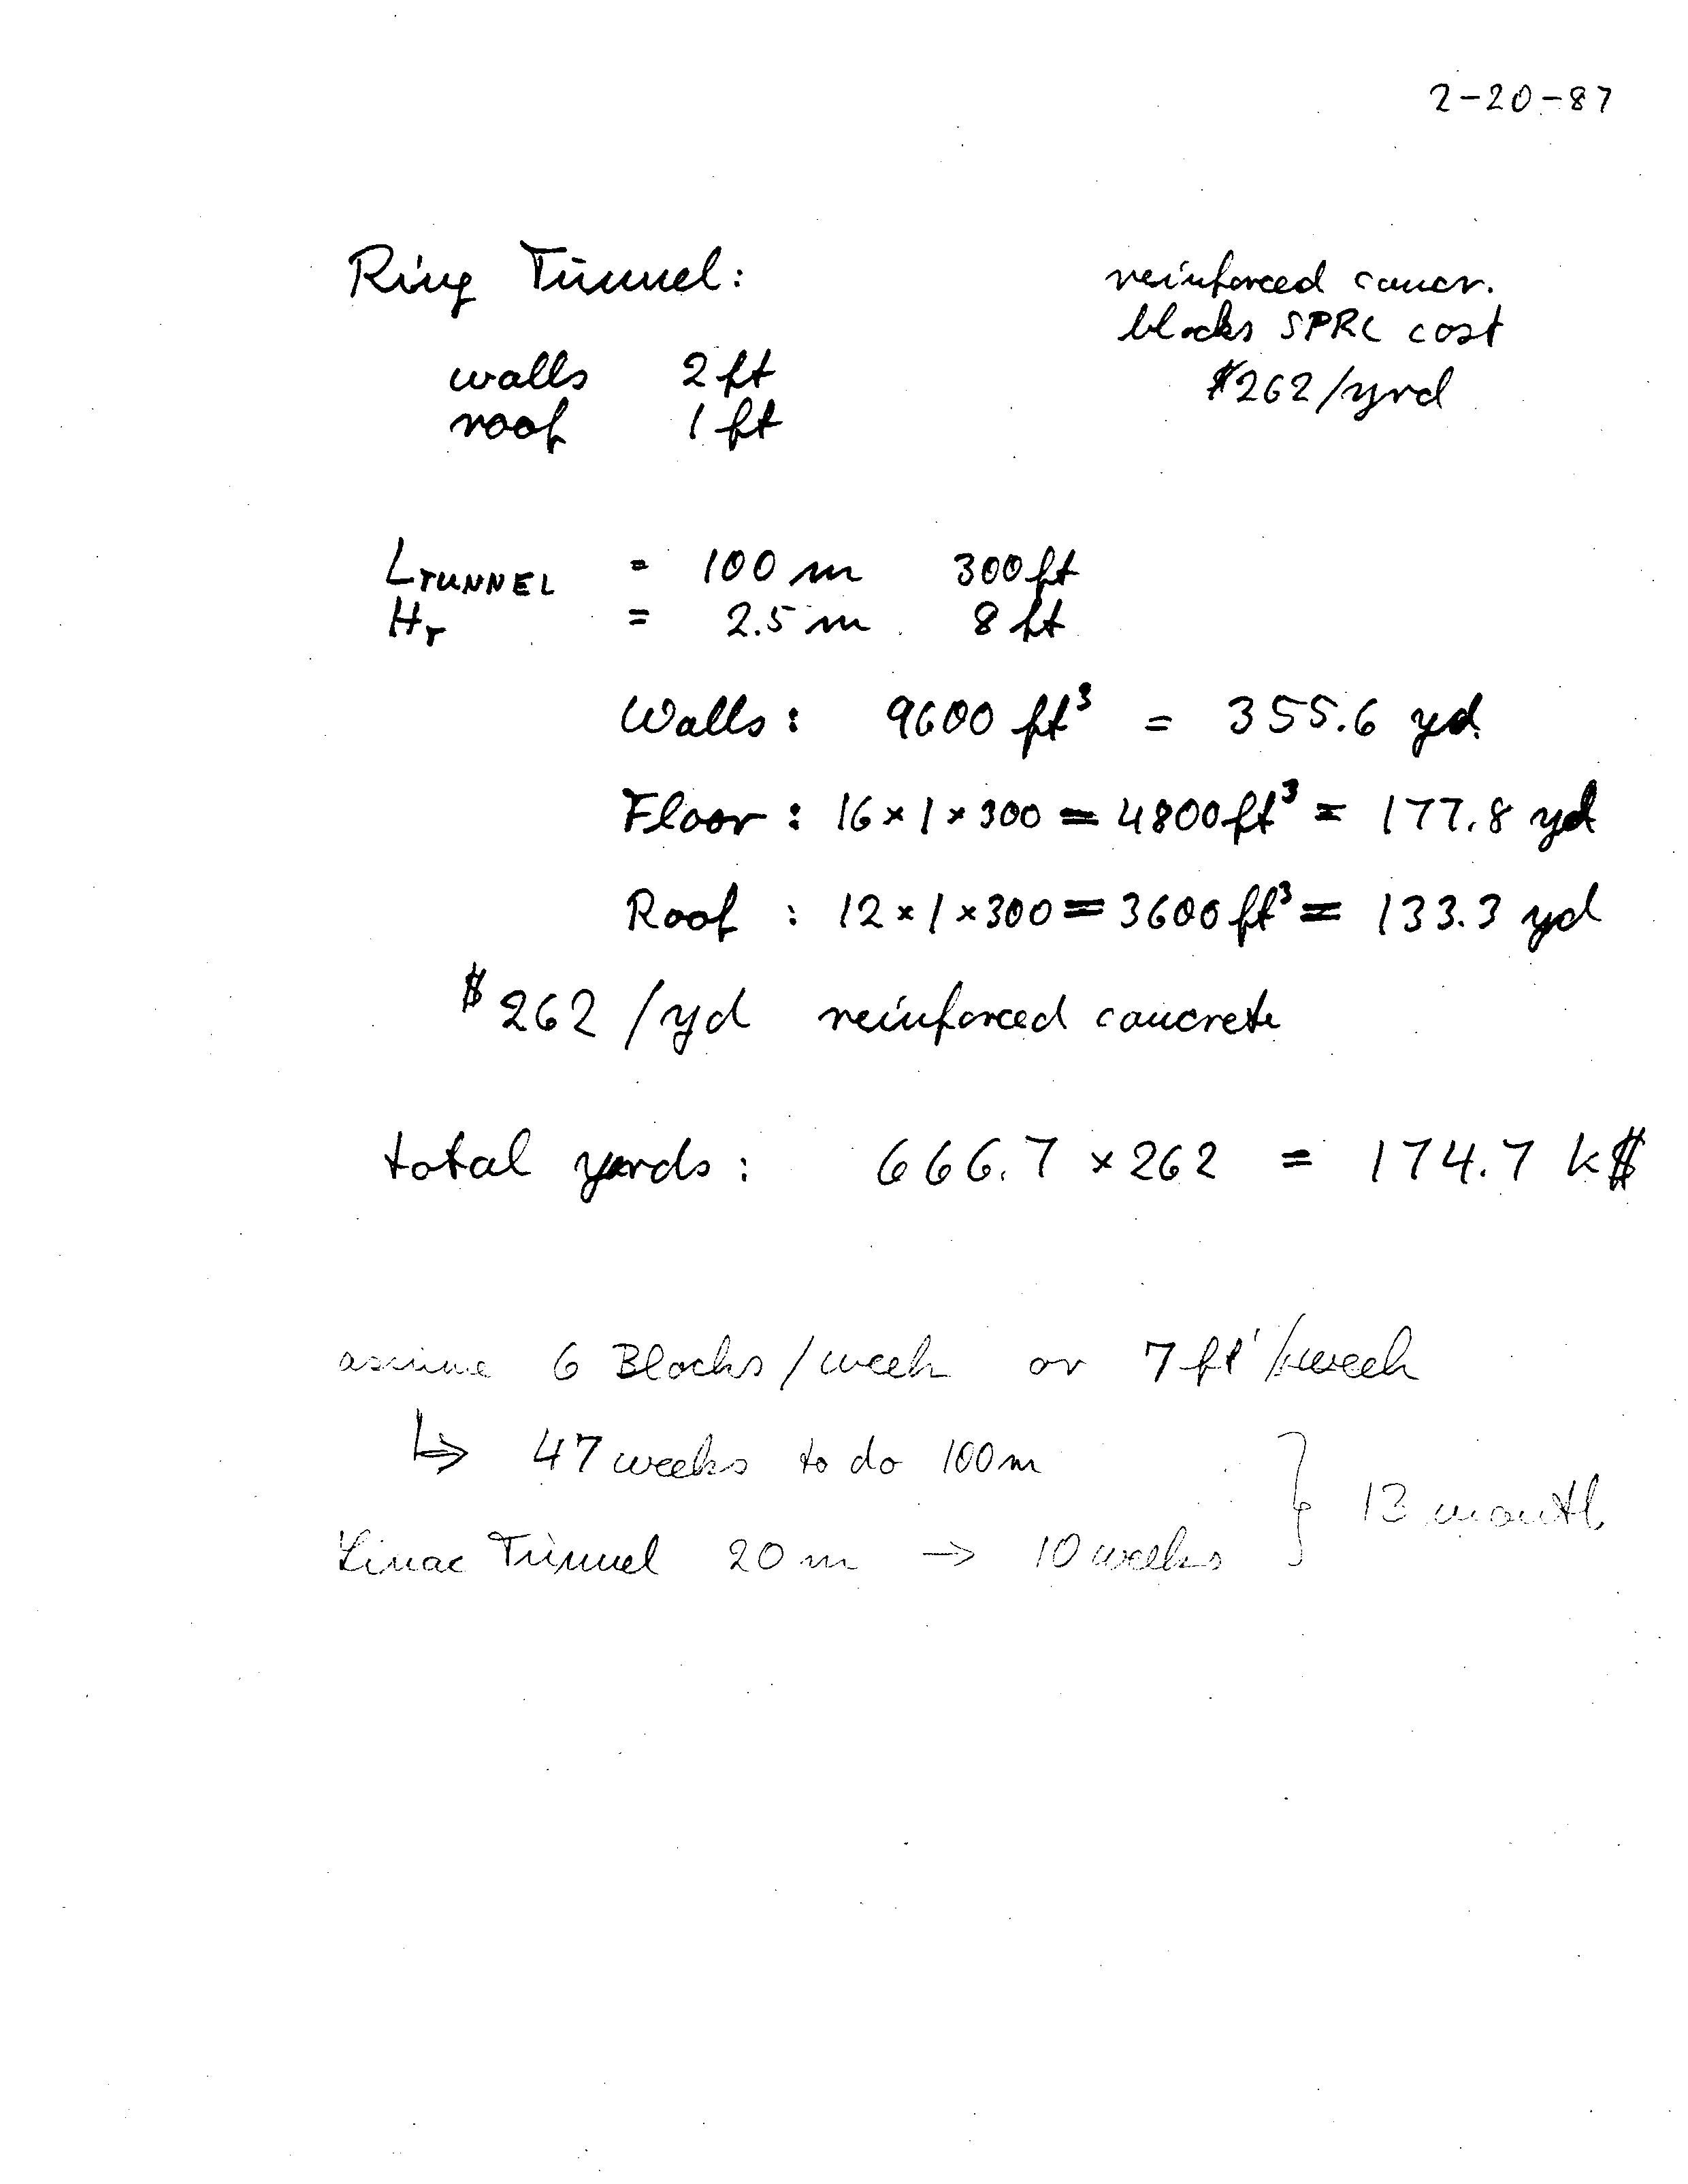 2-20-87
Ring Tunnel:
reinforced concr.
blocks SPRC cost
$262/yrd
walls 2 ft
roof 1 ft
LTUNNEL = 100 m 300 ft
HT = 2.5 m 8 ft
Walls: 9600 ft³ = 355.6 yd
Floor: 16 × 1 × 300 = 4800 ft³ = 177.8 yd
Roof: 12 × 1 × 300 = 3600 ft³ = 133.3 yd
$262/yd reinforced concrete
total yards: 666.7 × 262 = 174.7 k$
assume 6 Blocks/week or 7 ft'/week
↳ 47 weeks to do 100 m
} 13 month
Linac Tunnel 20 m → 10 weeks